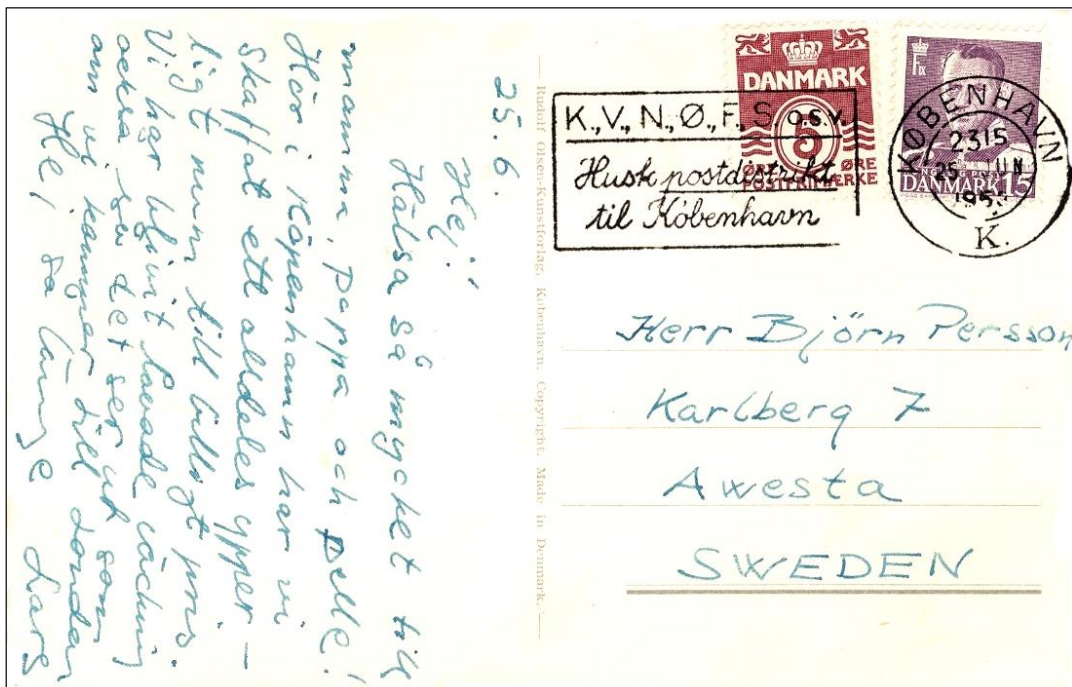 25.6.
Hej!
Hälsa så mycket till
mamma, pappa och Pelle!
Här i Köpenhamn har vi
skaffat ett alldeles ypper-
ligt rum till billigt pris.
Vi har blivit lovade
också, så det ser ut som
om vi kommer till London
Hej, så länge Lars
Rudolf Olsen-Kunstforlag, København. Copyright. Made in Denmark.
K., V., N., Ø., F., S. o.s.v.
Husk postdistrikt
til København
DANMARK
5
ØRE ØRE
POSTFRIMÆRKE
F IX
DANMARK 15
KØBENHAVN
2315
25 JUN
195
K.
Herr Björn Persson
Karlberg 7
Awesta
SWEDEN